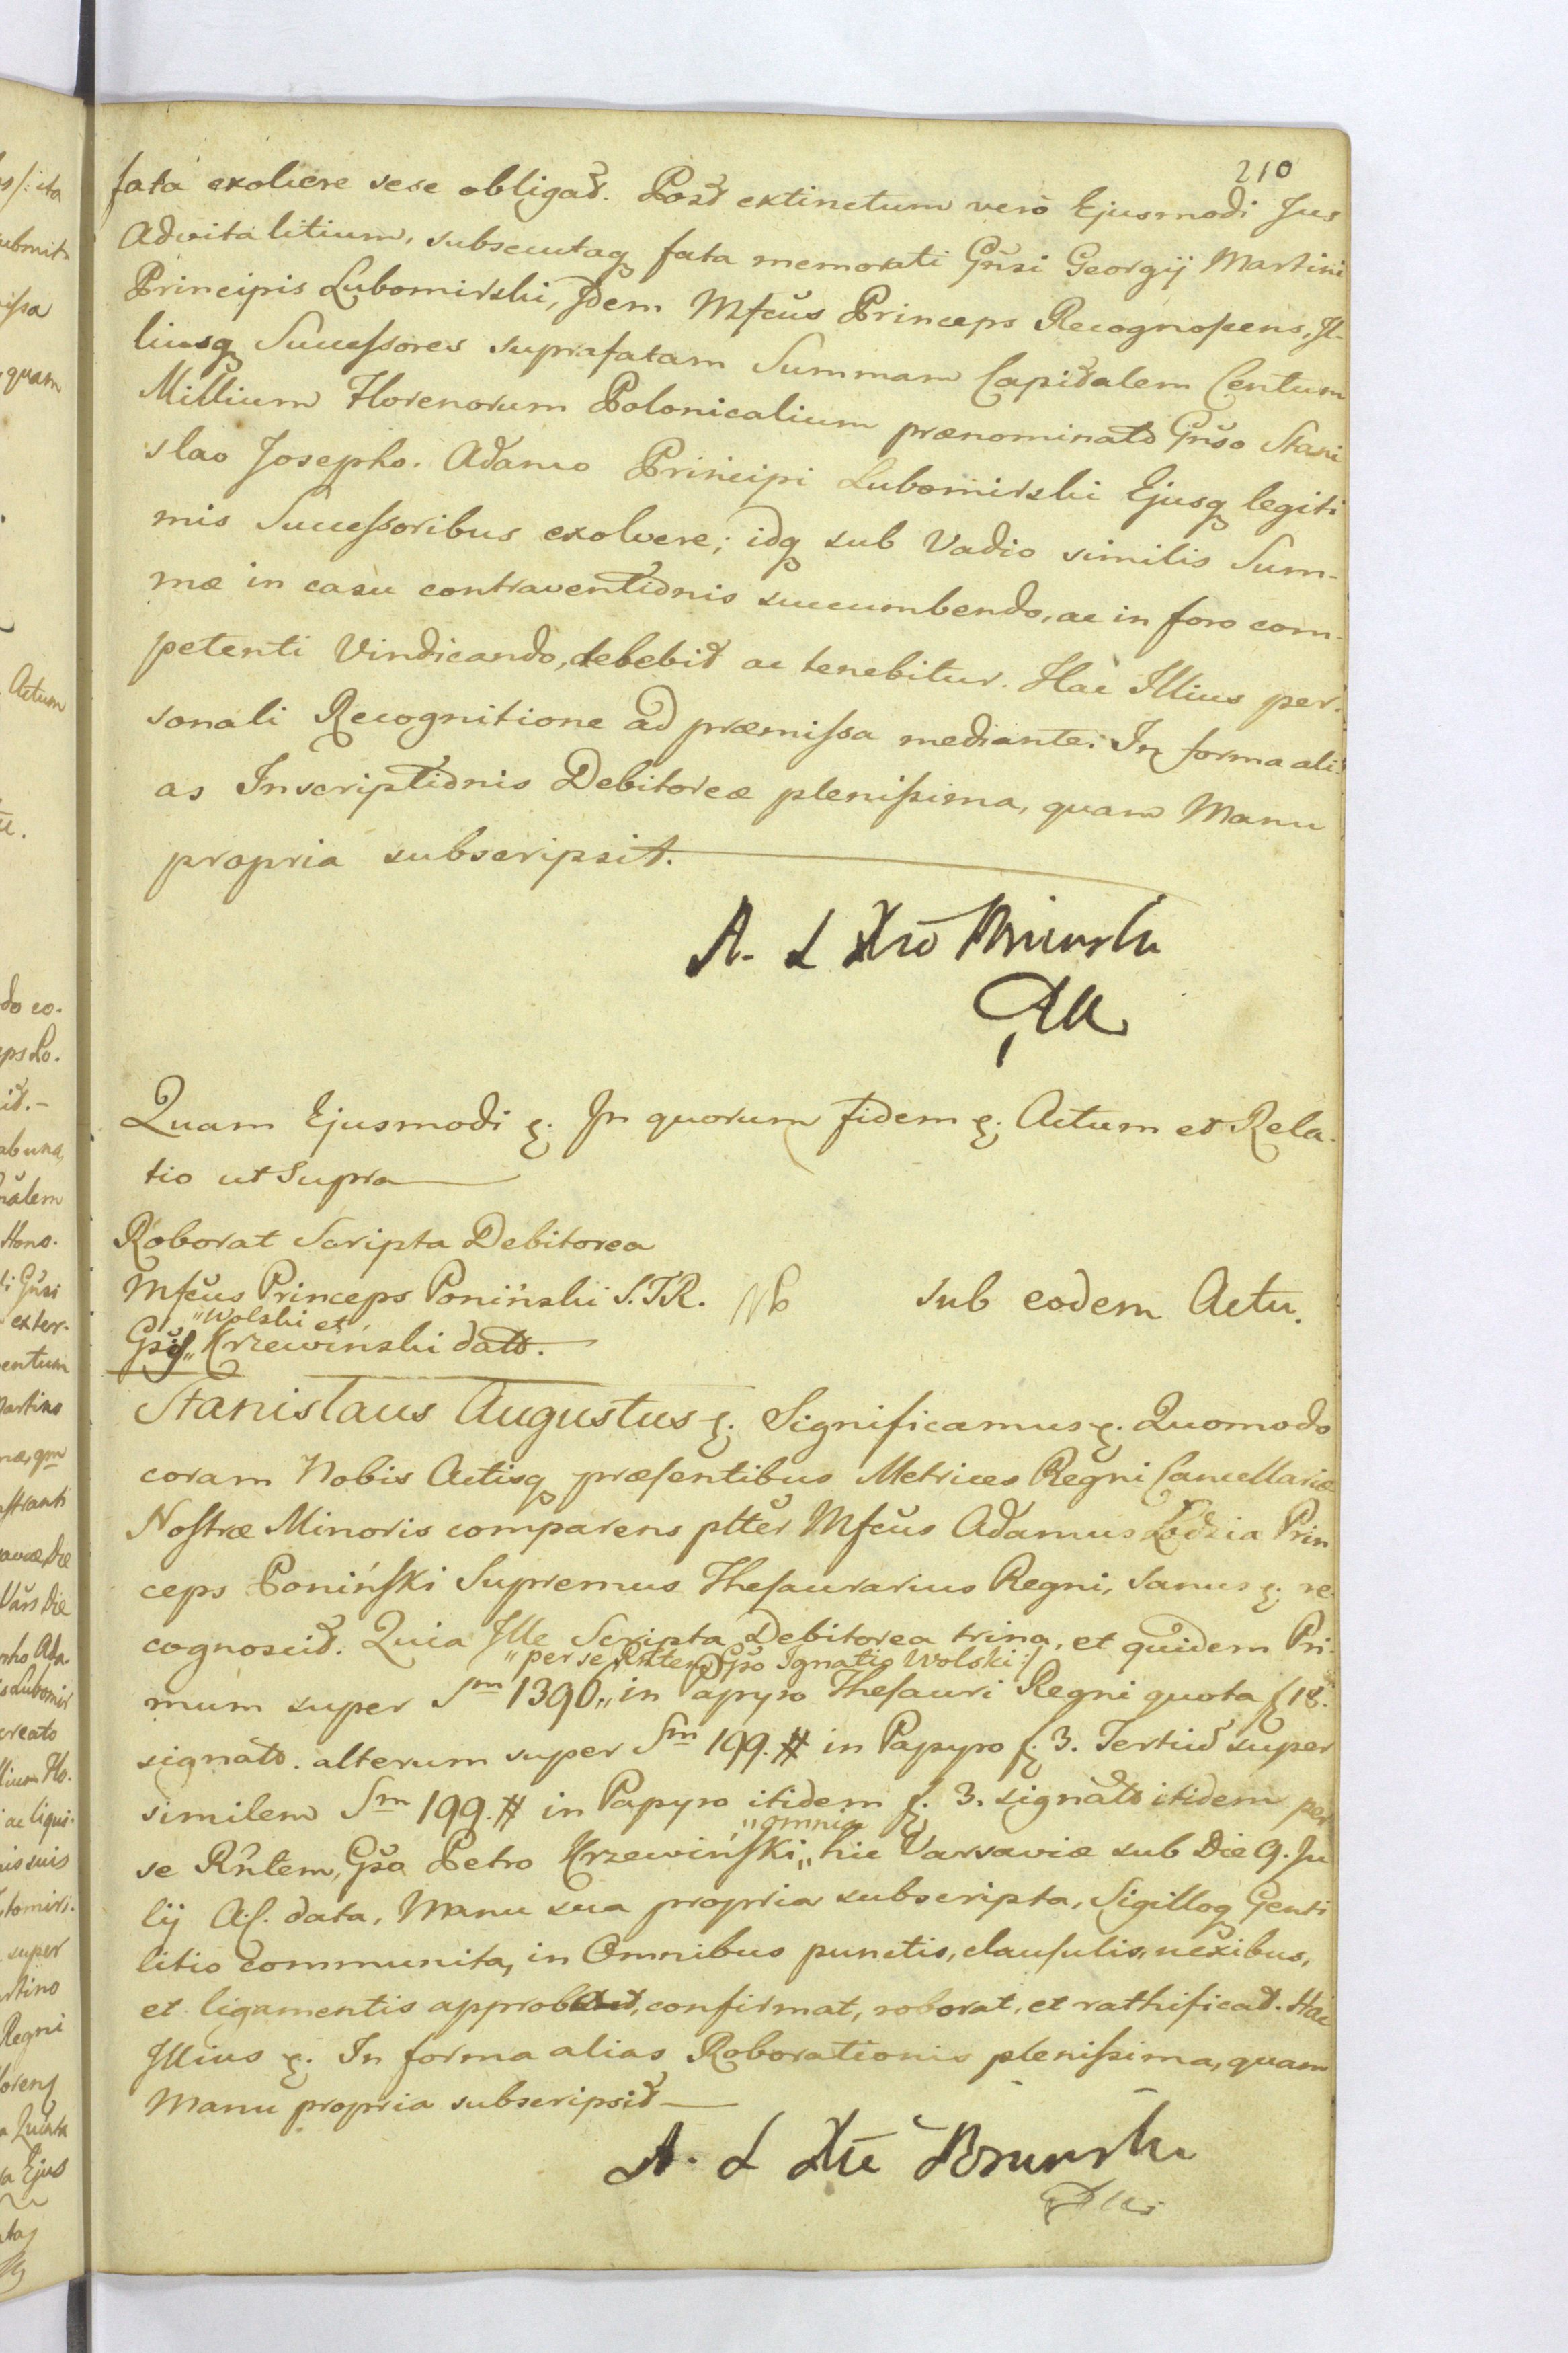 210
fata exolvere sese obligat. Post extinctum vero Ejusmodi Jus
Advitalitium, subsecutaq fata memorati Gnsi Georgij Martini
Principis Lubomirski, Idem Mfcus Princeps Recognoscens, Il-
liusq Successores suprafatam Summam Capitalem Centum
Millium Florenorum Polonicalium prænominato Gnso Stani
slao Josepho. Adamo Principi Lubomirski Ejusq legiti
mis Successoribus exolvere; idq sub Vadio similis Sum-
mæ in casu contraventionis succumbendo, ac in foro com-
petenti Vindicando, debebit ac tenebitur. Hac Illius per-
sonali Recognitione ad præmissa mediante. In forma ali-
as Inscriptionis Debitoreæ plenissima, quam Manu
propria subscripsit.
A. L Xże Poniński
Quam Ejusmodi &. In quorum fidem &. Actum et Rela-
tio ut Supra
Roborat Scripta Debitorea
Mfcus Princeps Poniński S.T.R. sub eodem Actu.
"Wolski et
Gsis" Krzewiński dato.
Stanislaus Augustus &. Significamus &. Quomodo
coram Nobis Actisq præsentibus Metrices Regni Cancellariæ
Nostræ Minoris comparens pltter Mfcus Adamus Łodzia Prin
ceps Poniński Supremus Thesaurarius Regni, sanus &. re-
cognoscit. Quia Ille Scripta Debitorea trina, et quidem Pri-
"per se Rntem Gso Ignatio Wolski:/
mum super Sm 1396" in Papyro Thesauri Regni quota f 18.
signato. alterum super Sm 199. # in Papyro f. 3. Tertiu super
similem Sm 199. # in Papyro itidem f. 3. signato itidem per
"omnia
se Rntem, Gso Petro Krzewiński" hic Varsaviæ sub Die 9. Ju
lij A.C. data, Manu sua propria subscripta, Sigilloq Genti
litio communita, in Omnibus punctis, clausulis, nexibus,
et ligamentis approbat, confirmat, roborat, et rathificat. Hac
Illius &. In forma alias Roborationis plenissima, quam
Manu propria subscripsit
A. L Xże Poniński